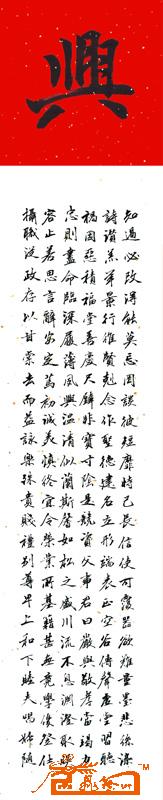 興
知過必改得能莫忘罔談彼短靡恃己長信使可覆器欲難量墨悲絲染
詩讚羔羊景行維賢克念作聖德建名立形端表正空谷傳聲虛堂習聽
禍因惡積福緣善慶尺璧非寶寸陰是競資父事君曰嚴與敬孝當竭力
忠則盡命臨深履薄夙興溫凊似蘭斯馨如松之盛川流不息淵澄取映
容止若思言辭安定篤初誠美慎終宜令榮業所基籍甚無竟學優登仕
攝職從政存以甘棠去而益詠樂殊貴賤禮別尊卑上和下睦夫唱婦隨